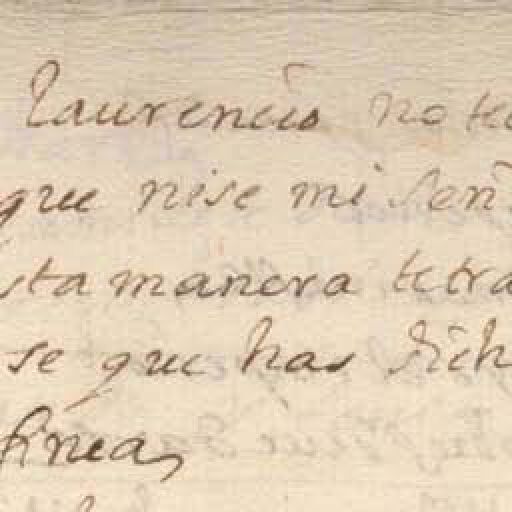 laurencio no te
que nise mi señ
sta manera tetra
se que has dich
finea,